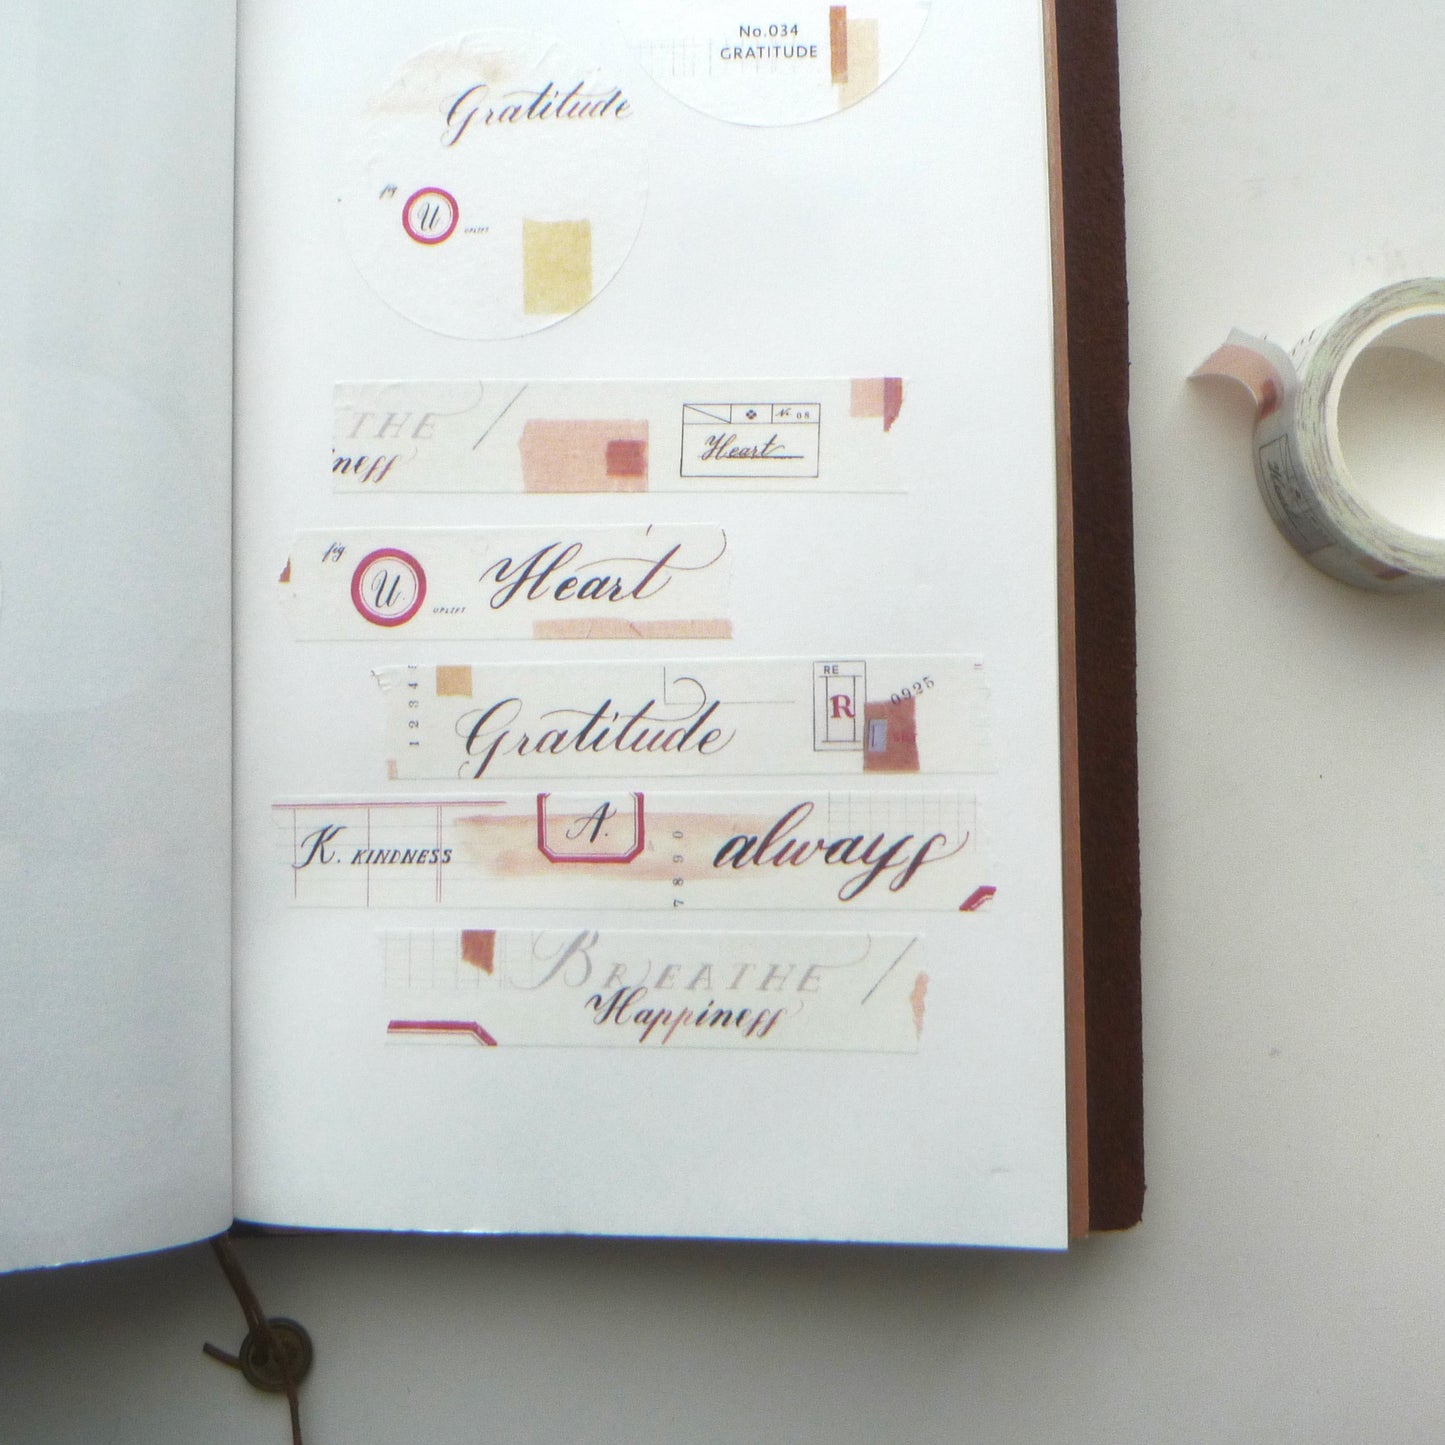 No.034
GRATITUDE
Gratitude
fig
U
UPLIFT
THE
iness
No. 08
Heart
fig
U.
UPLIFT
Heart
1 2 3 4 5
Gratitude
RE
R
0925
K. KINDNESS
A.
7 8 9 0
always
BREATHE
Happiness